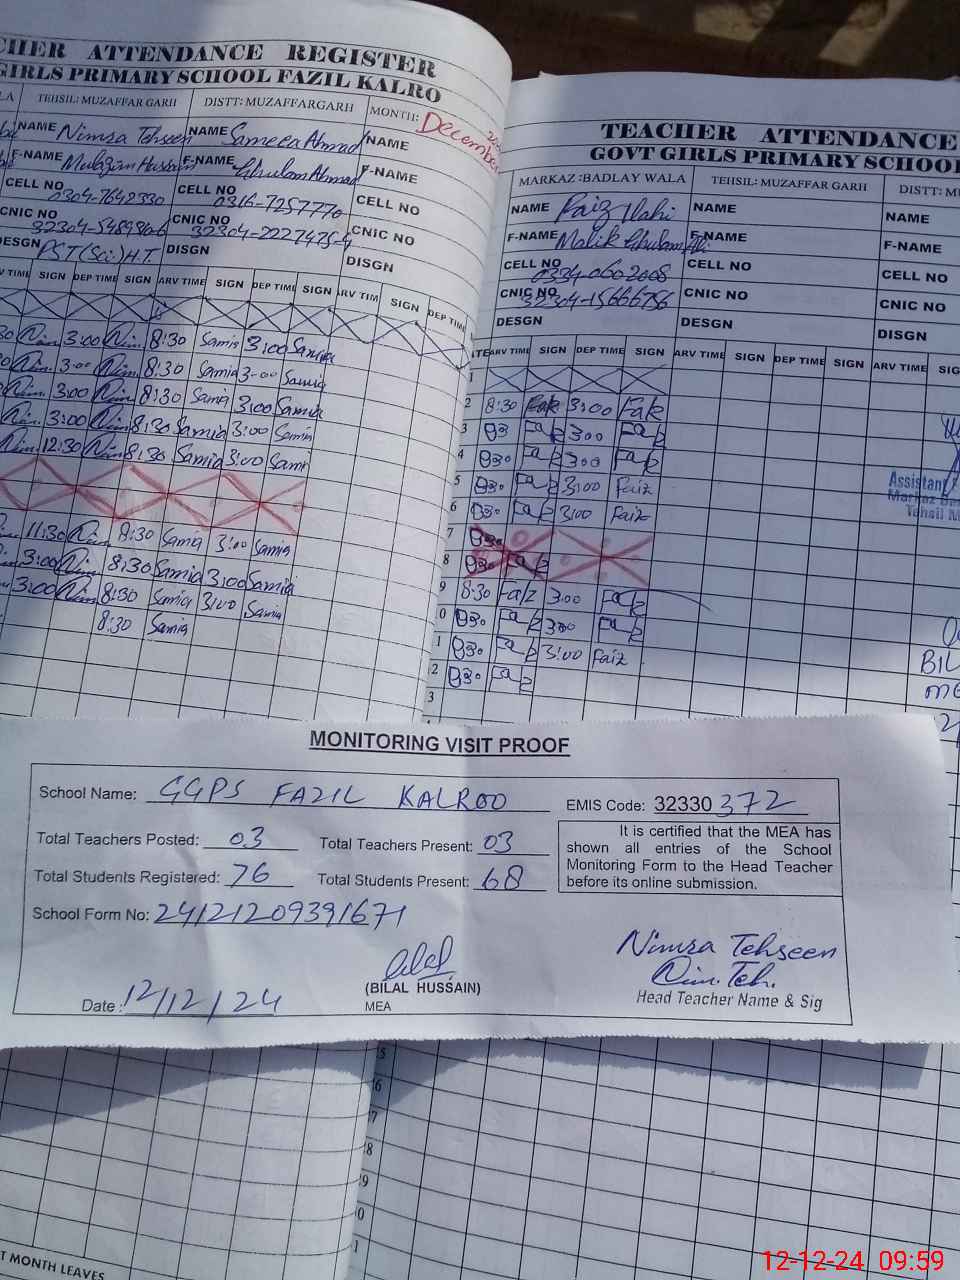 CHER ATTENDANCE REGISTER
GIRLS PRIMARY SCHOOL FAZIL KALRO
LA TEHSIL: MUZAFFAR GARH DISTT: MUZAFFARGARH MONTH: December
NAME Nimra Tehseen NAME Sameera Ahmad NAME
F-NAME F-NAME Ghulam Ahmad F-NAME
CELL NO 0304-7642330 CELL NO 0316-7257770 CELL NO
CNIC NO CNIC NO 32304-2227475-4 CNIC NO
DESGN PST(Sci) H.T. DISGN DISGN
V TIME SIGN DEP TIME SIGN ARV TIME SIGN DEP TIME SIGN ARV TIM SIGN DEP TIME
30 Nim 3:00 Nim 8:30 Samia 3:00 Samia
0 Nim 3:00 Nim 8:30 Samia 3:00 Samia
Nim 3:00 Nim 8:30 Samia 3:00 Samia
Nim 3:00 Nim 8:30 Samia 3:00 Samia
Nim 12:30 Nim 8:30 Samia 3:00 Sami
11:30 Nim 8:30 Samia 3:00 Samia
3:00 Nim 8:30 Samia 3:00 Samia
3:00 Nim 8:30 Samia 3:00 Samia
8:30 Samia
TEACHER ATTENDANCE
GOVT GIRLS PRIMARY SCHOOL
MARKAZ :BADLAY WALA TEHSIL: MUZAFFAR GARH DISTT: MU
NAME Faiz Ilahi NAME NAME
F-NAME Malik Ghulam Ali F-NAME F-NAME
CELL NO 0334-0602008 CELL NO CELL NO
CNIC NO 32304-15666756 CNIC NO CNIC NO
DESGN DESGN DISGN
TE ARV TIME SIGN DEP TIME SIGN ARV TIME SIGN DEP TIME SIGN ARV TIME SIG
1
2 8:30 Faiz 3:00 Faiz
3 83 Faiz 300 Faiz
4 830 Faiz 300 Faiz
5 830 Faiz 3:00 Faiz
6 830 Faiz 3:00 Faiz
7 830
8 830 Faiz
9 8:30 Faiz 3:00 Faiz
0 830 Faiz 300 Faiz
1 830 Faiz 3:00 Faiz
2 830 Faiz
3
Assistant
Markaz
Tehsil M
BIL
ME
MONITORING VISIT PROOF
School Name: GGPS FAZIL KALROO EMIS Code: 32330372
Total Teachers Posted: 03 Total Teachers Present: 03
Total Students Registered: 76 Total Students Present: 68
School Form No: 24121209391671
It is certified that the MEA has
shown all entries of the School
Monitoring Form to the Head Teacher
before its online submission.
Nimra Tehseen
Nim.Teh.
Head Teacher Name & Sig
(BILAL HUSSAIN)
MEA
Date : 12/12/24
5
6
7
8
9
0
1
T MONTH LEAVES
12-12-24 09:59